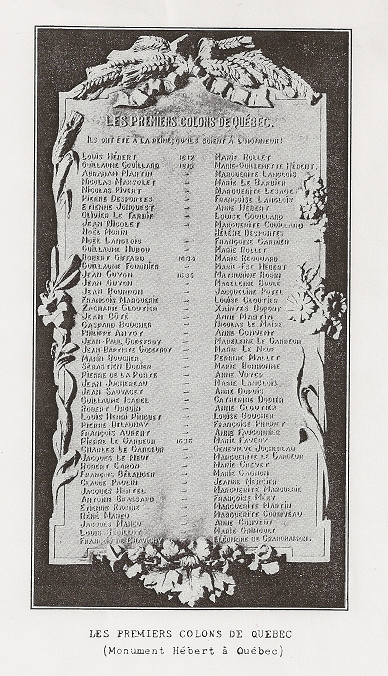 LES PREMIERS COLONS DE QUÉBEC.
ILS ONT ÉTÉ A LA PEINE, QU'ILS SOIENT À L'HONNEUR!
LOUIS HÉBERT 1617 MARIE ROLLET
GUILLAUME COUILLARD MARIE-GUILLEMETTE HÉBERT.
ABRAHAM MARTIN MARGUERITE LANGLOIS
NICOLAS MARSOLET MARIE LE BARBIER
NICOLAS PIVERT MARGUERITE LESAGE
PIERRE DESPORTES FRANÇOISE LANGLOIS
ETIENNE JONQUEST ANNE HÉBERT
OLIVIER LE TARDIF LOUISE COUILLARD
JEAN NICOLET MARGUERITE COUILLARD
NOËL MORIN HÉLÈNE DESPORTES
NOËL LANGLOIS FRANÇOISE GARNIER
GUILLAUME HUBOU MARIE ROLLET
ROBERT GIFFARD 1634 MARIE RENOUARD
GUILLAUME FOURNIER MARIE-FSE HÉBERT
JEAN GUYON 1634 MATHURINE ROBIN
JEAN GUYON MADELEINE BOULÉ
JEAN BOURDON JACQUELINE POTEL
FRANÇOIS MARGUERIE LOUISE CLOUTIER
ZACHARIE CLOUTIER XAINTES DUPONT
JEAN CÔTÉ ANNE MARTIN
GASPARD BOUCHER NICOLAS LE MAIRE
PHILIPPE AMYOT ANNE CONVENT
JEAN-PAUL GODEFROY MADELEINE LE GARDEUR
JEAN-BAPTISTE GODEFROY MARIE LE NEUF
MARIN BOUCHER PERRINE MALLET
SÉBASTIEN DODIER MARIE BONHOMME
PIERRE DE LA PORTE ANNE VOYER
JEAN JUCHEREAU MARIE LANGLOIS
JEAN SAUVAGET ANNE DUPUIS
GUILLAUME ISABEL CATHERINE DODIER
ROBERT DROUIN ANNE CLOUTIER
LOUIS HENRI PINGUET LOUISE BOUCHER
PIERRE DELAUNAY FRANÇOISE PINGUET
FRANÇOIS AUBERT ANNE FAUCONNIER
PIERRE LE GARDEUR 1636 MARIE FAVERY
CHARLES LE GARDEUR GENEVIÈVE JUCHEREAU
JACQUES LE NEUF MARGUERITE LE GARDEUR
ROBERT CARON MARIE CREVET
FRANÇOIS BÉLANGER MARIE GUYON
CLAUDE POULIN JEANNE MERCIER
JACQUES HERTEL MARGUERITE MARGUERIE
ANTOINE BRASSARD FRANÇOISE MÉRY
ETIENNE RACINE MARGUERITE MARTIN
RÉNÉ MAHEU MARGUERITE CORRIVEAU
JACQUES MAHEU ANNE CONVENT
LOUIS MARIE
FRANÇOIS DE CHAVIGNY ELÉONORE DE GRANDMAISON.
LES PREMIERS COLONS DE QUEBEC
(Monument Hébert à Québec)